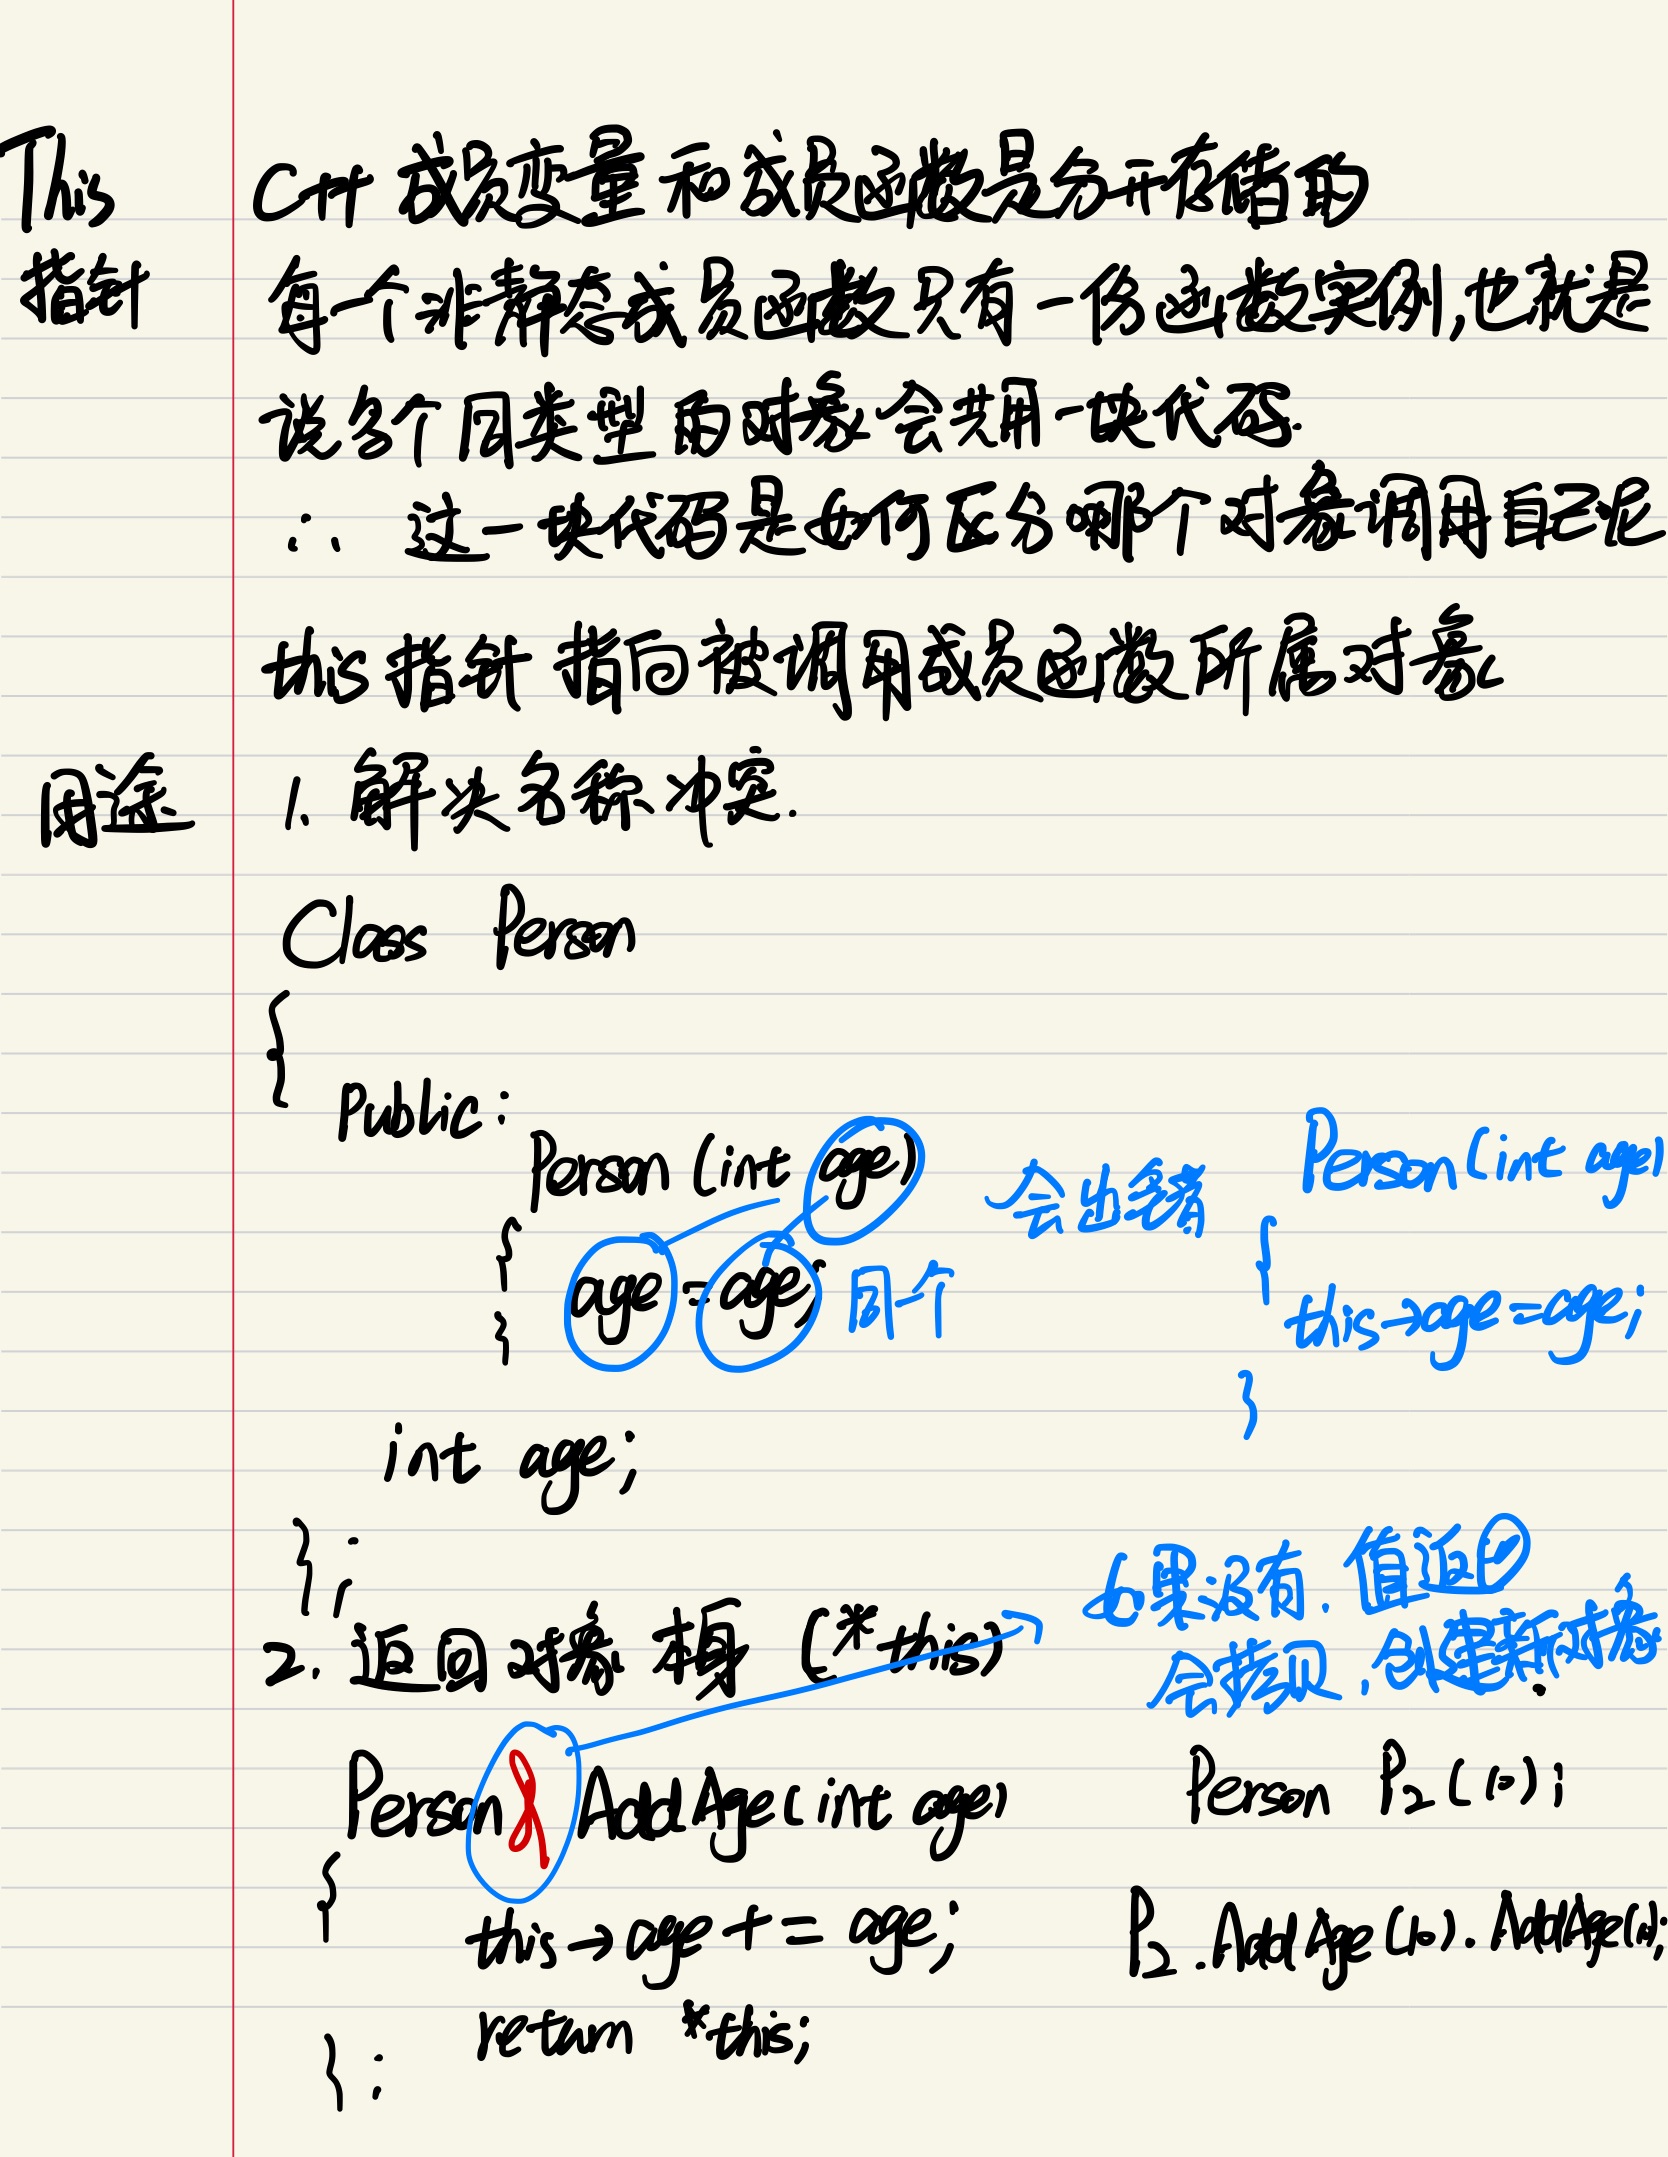 This
指针
C++ 成员变量和成员函数是分开存储的
每一个非静态成员函数只有一份函数实例,也就是
说多个同类型的对象会共用一块代码.
∴ 这一块代码是如何区分哪个对象调用自己呢
this指针 指向被调用成员函数所属对象
用途
1. 解决名称冲突.
Class Person
{
Public:
Person (int age)
{
age = age;
}
同一个
会出错
Person(int age)
{
this→age=age;
}
int age;
};
2. 返回对象本身 (*this)
如果没有. 值返回
会拷贝,创建新对象.
Person & AddAge(int age)
{
this→age += age;
return *this;
};
Person P2(10);
P2.AddAge(10).AddAge(10);